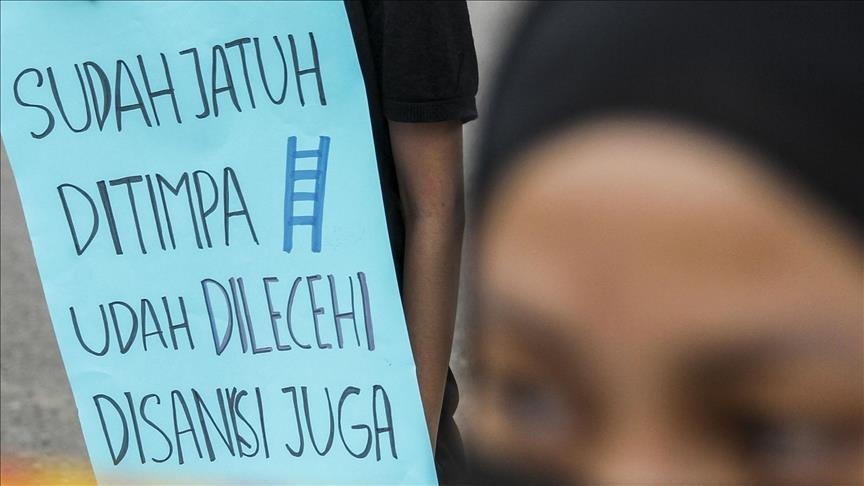 SUDAH JATUH
DITIMPA
UDAH DILECEHI
DISANKSI JUGA